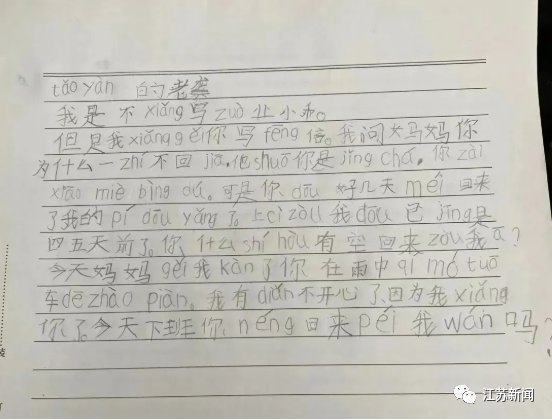 tǎo yàn 的老龚
我是不xiǎng写zuò业小乖。
但是我xiǎng gěi你写fēng信。我问妈妈你
为什么一zhí不回jiā,他shuō你是jǐng chá,你zài
xiāo miè bìng dú。可是你dōu好几天méi回来
了我的pí dōu yǎng了。上cì zòu我dōu已jīng是
四五天前了。你什么shí hòu有空回来zòu我ā?
今天妈妈gěi我kàn了你在雨中qí mó tuō
车de zhào piàn。我有diǎn不开心了因为我xiǎng
你了。今天下班你néng回来péi我wán吗?
江苏新闻